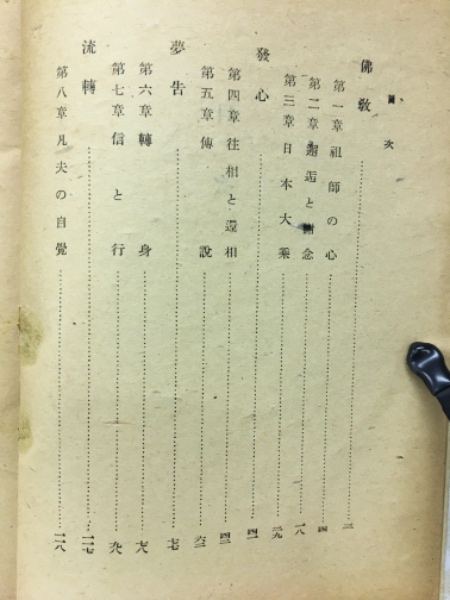 目次
佛教……二
第一章祖師の心……四
第二章邂逅と謝念……一八
第三章日本大乘……二九
發心……四一
第四章往相と還相……四二
第五章傳説……六二
夢告……七七
第六章轉身……七八
第七章信と行……九八
流轉……一一七
第八章凡夫の自覺……一一八